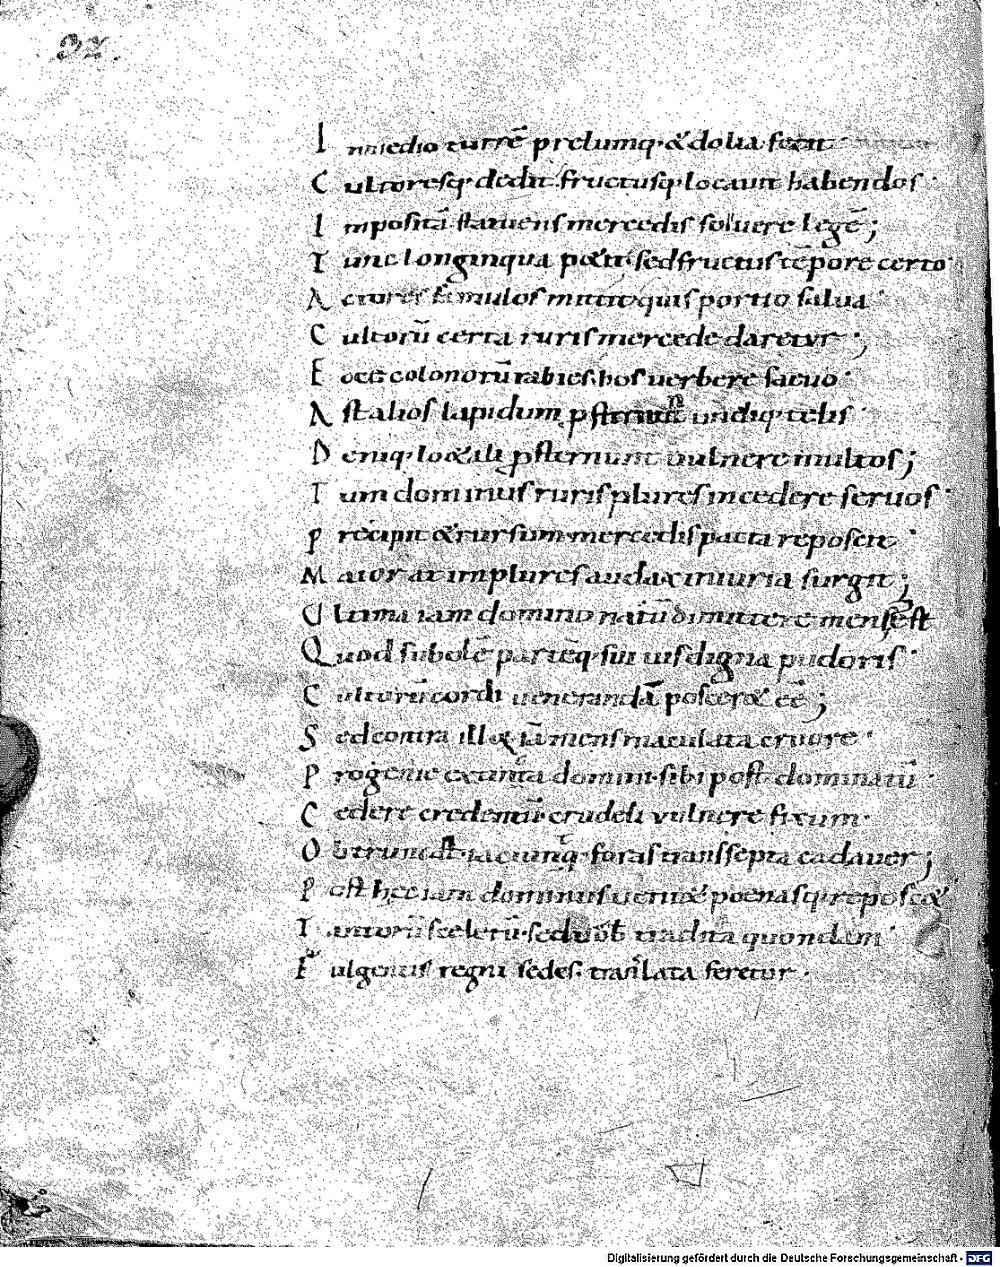 92.
I nmedio turrē prelumq· & dolia fecit·
C ultoresq· dedit· fructusq· locauit habendos·
I mpositā statuens mercedis soluere legē;
T unc longinqua petit· sed fructus tēpore certo·
A ctores famulos mittit quis portio salua·
C ultorū certa ruris mercede daretur;
E cce colonorū rabies· hos uerbere saeuo·
A st alios lapidum undiq· telis·
D eniq· lo&ali psternunt uulnere multos;
T um dominus ruris plures incedere seruos·
P recipit & rursum mercedis pacta reposcit·
M aior at in plures audax iniuria surgit;
U ltima iam domino natū dimittere mens ēst
Q uod subolē partēq· sui uis digna pudoris·
C ulturū cordi uenerandā poscer& eē;
S ed contra illos iā mens maculata cruore·
P rogenie extincta domini· sibi post dominatū·
C edere credentū· crudeli vulnere fixum·
O btruncāt· iaciuntq· foras transsepta cadauer;
P ost hęc iam dominus ueni& poenasq· reposc&
T antorū scelerū· sed tradita quondam
F ulgentis regni sedes· translata feretur·
Digitalisierung gefördert durch die Deutsche Forschungsgemeinschaft - DFG